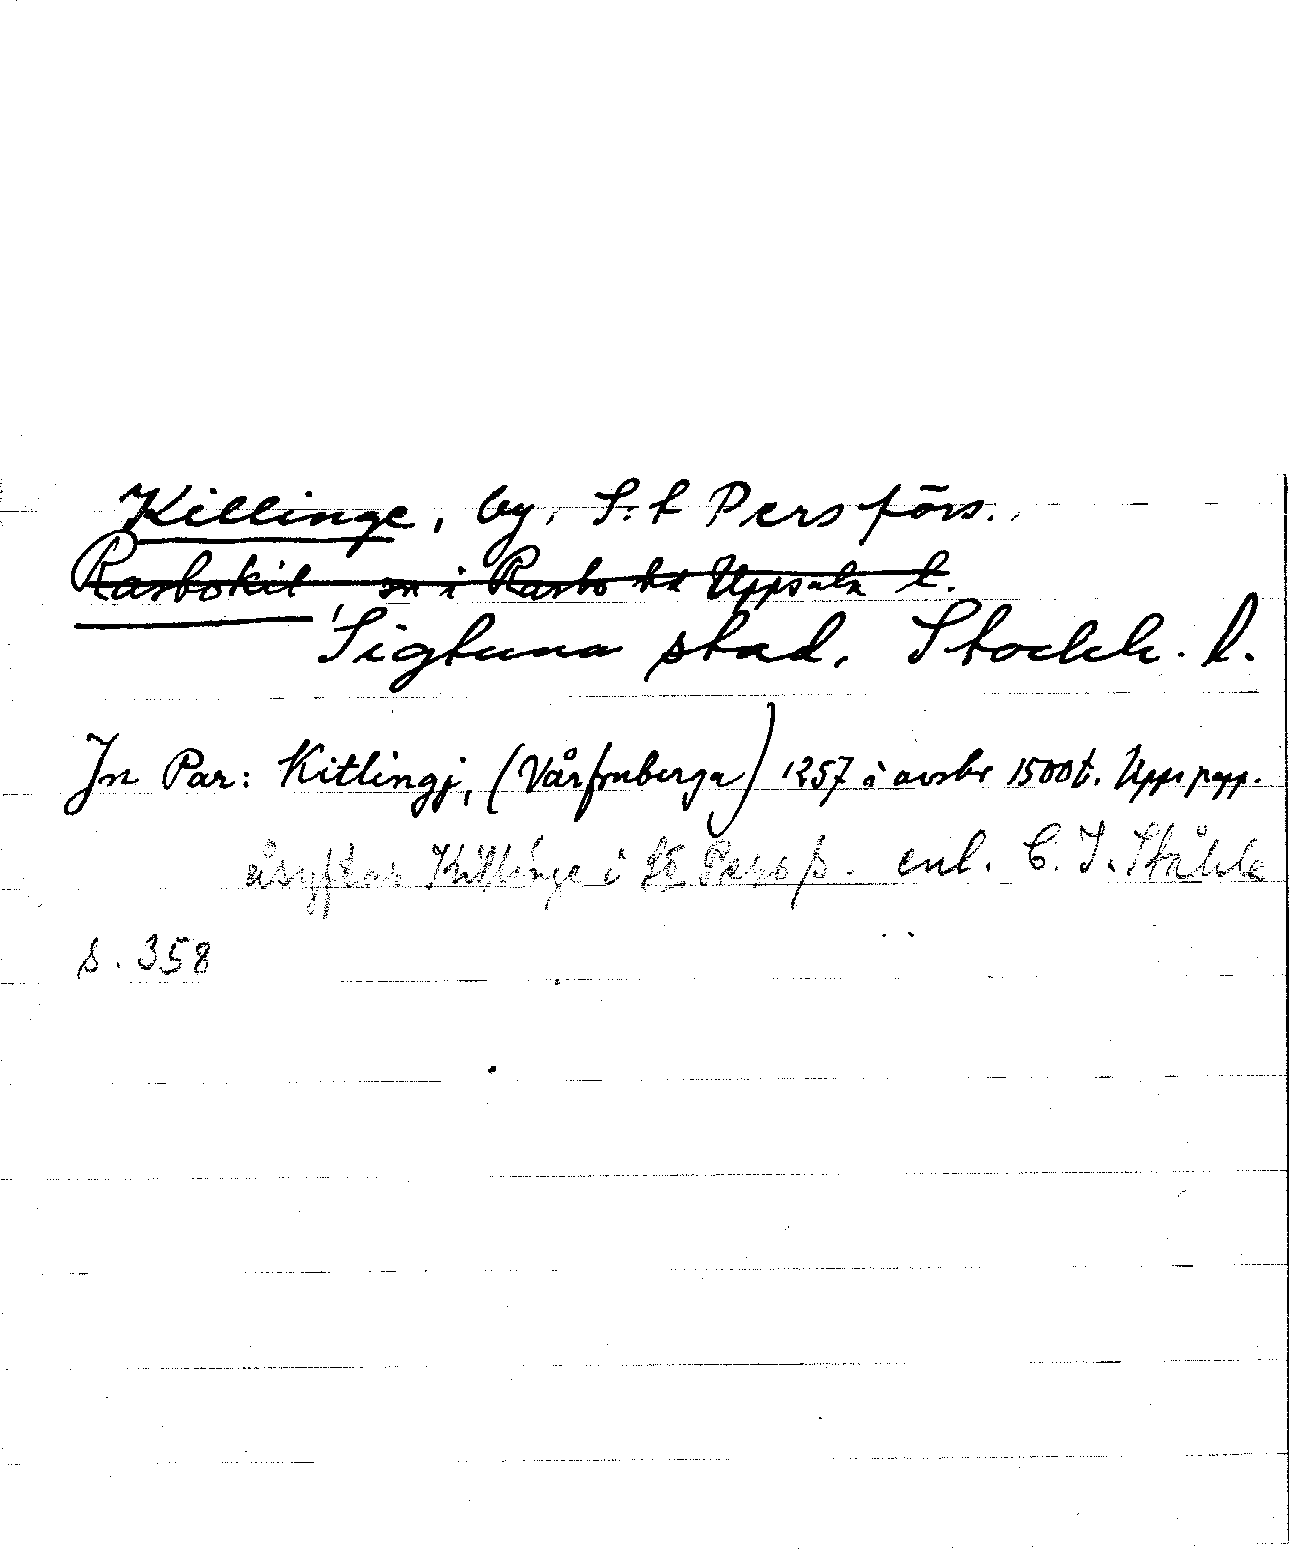 Killinge, by, S:t Pers förs.
Rasbokil sn i Rasbo hd Uppsala l.
Sigtuna stad, Stockh. l.
In Par: Kitlingj, (Vårfruberga) 1257 i avskr 1500t. Upps papp.
åsyftar Killinge i St Pers s. enl. C. I. Ståhle
s. 358